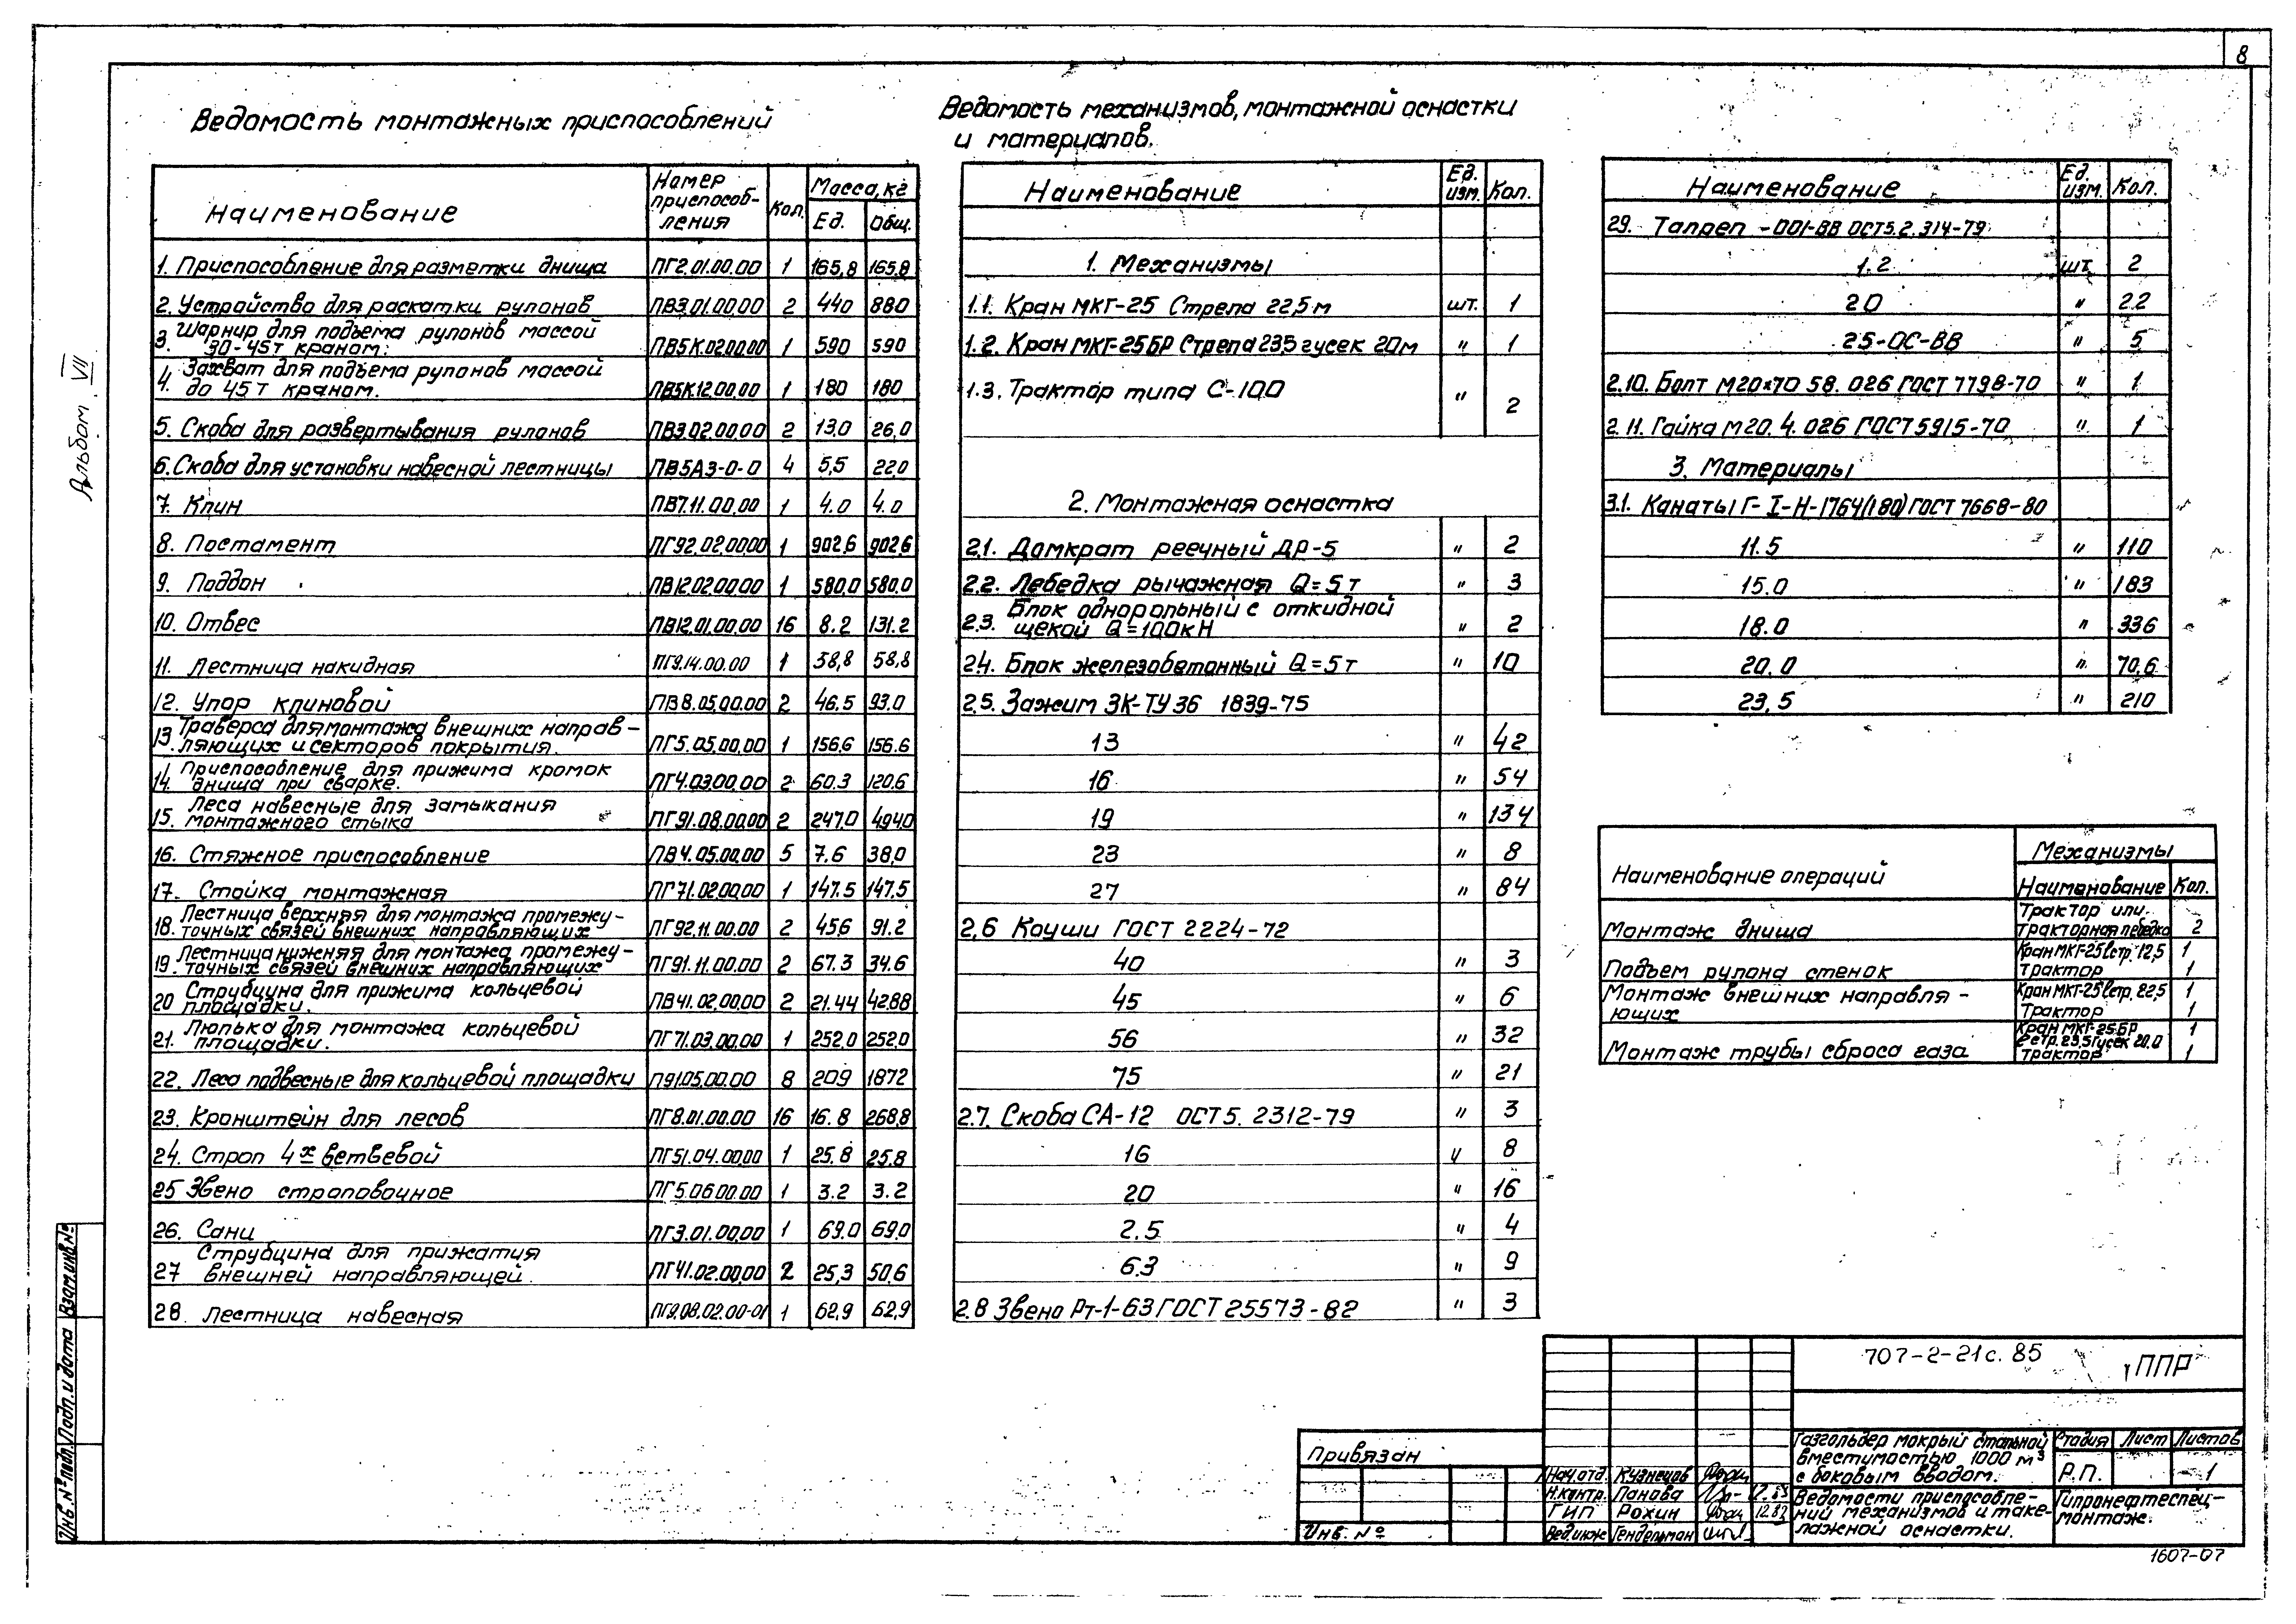 8
Альбом VII
Ведомость монтажных приспособлений
Наименование | Номер приспособ-ления | Кол. | Масса, кг Ед. | Общ.
1. Приспособление для разметки днища | ПГ2.01.00.00 | 1 | 165,8 | 165,8
2. Устройство для раскатки рулонов | ПВ3.01.00.00 | 2 | 440 | 880
3. Шарнир для подъема рулонов массой 30-45т краном. | ПВ5К.02.00.00 | 1 | 590 | 590
4. Захват для подъема рулонов массой до 45т краном. | ПВ5К.12.00.00 | 1 | 180 | 180
5. Скоба для развертывания рулонов | ПВ3.02.00.00 | 2 | 13.0 | 26.0
6. Скоба для установки навесной лестницы | ПВ5А3-0-0 | 4 | 5,5 | 22.0
7. Клин | ПВ7.11.00.00 | 1 | 4.0 | 4.0
8. Постамент | ПГ92.02.00.00 | 1 | 902,6 | 902,6
9. Поддон | ПВ12.02.00.00 | 1 | 580.0 | 580.0
10. Отвес | ПВ12.01.00.00 | 16 | 8.2 | 131.2
11. Лестница накидная | ПГ9.14.00.00 | 1 | 58,8
12. Упор клиновой | ПВ8.05.00.00 | 2 | 46.5 | 93.0
13. Траверса для монтажа внешних направ-ляющих и секторов покрытия. | ПГ5.05.00.00 | 1 | 156,6 | 156.6
14. Приспособление для прижима кромок днища при сварке. | ПГ4.03.00.00 | 2 | 60.3 | 120.6
15. Леса навесные для замыкания монтажного стыка | ПГ91.08.00.00 | 2 | 247.0 | 494.0
16. Стяжное приспособление | ПВ4.05.00.00 | 5 | 7.6 | 38,0
17. Стойка монтажная | ПГ71.02.00.00 | 1 | 147.5 | 147.5
18. Лестница верхняя для монтажа промежу-точных связей внешних направляющих | ПГ92.11.00.00 | 2 | 45,6 | 91.2
19. Лестница нижняя для монтажа промежу-точных связей внешних направляющих | ПГ91.11.00.00 | 2 | 67.3 | 34.6
20 Струбцина для прижима кольцевой площадки. | ПВ41.02.00.00 | 2 | 21.44 | 42.88
21. Люлька для монтажа кольцевой площадки. | ПГ71.03.00.00 | 1 | 252.0 | 252.0
22. Леса подвесные для кольцевой площадки | П91.05.00.00 | 8 | 209 | 1872
23. Кронштейн для лесов | ПГ8.01.00.00 | 16 | 16.8 | 268,8
24. Строп 4х ветвевой | ПГ51.04.00.00 | 1 | 25.8 | 25.8
25 Звено строповочное | ПГ5.06.00.00 | 1 | 3.2 | 3.2
26. Сани | ПГ3.01.00.00 | 1 | 69.0 | 69.0
27 Струбцина для прижатия внешней направляющей. | ПГ41.02.00.00 | 2 | 25,3 | 50,6
28. Лестница навесная | ПГ9.08.02.00-01 | 1 | 62,9 | 62,9
Ведомость механизмов, монтажной оснастки
и материалов.
Наименование | Ед. изм. | Кол.
1. Механизмы
1.1. Кран МКГ-25 Стрела 22,5 м | шт. | 1
1.2. Кран МКГ-25БР Стрела 23,5 гусек 20м | " | 1
1.3. Трактор типа С-100 | " | 2
2. Монтажная оснастка
2.1. Домкрат реечный ДР-5 | " | 2
2.2. Лебедка рычажная Q=5т | " | 3
2.3. Блок однорольный с откидной щекой Q=100кН | " | 2
2.4. Блок железобетонный Q=5т | " | 10
2.5. Зажим ЗК-ТУ36 1839-75
13 | " | 42
16 | " | 54
19 | " | 134
23 | " | 8
27 | " | 84
2,6 Коуши ГОСТ 2224-72
40 | " | 3
45 | " | 6
56 | " | 32
75 | " | 21
2.7. Скоба СА-12 ОСТ5. 2312-79 | " | 3
16 | " | 8
20 | " | 16
2.5 | " | 4
6.3 | " | 9
2.8 Звено Рт-1-63 ГОСТ 25573-82 | " | 3
Наименование | Ед. изм. | Кол.
29. Талреп -001-ВВ ОСТ5.2.314-79
1.2 | шт. | 2
20 | " | 22
25-ОС-ВВ | " | 5
2.10. Болт М20×70 58.026 ГОСТ 7798-70 | " | 1
2.11. Гайка М20.4.026 ГОСТ 5915-70 | " | 1
3. Материалы
3.1. Канаты Г-I-Н-1764(180) ГОСТ 7668-80
11.5 | " | 110
15.0 | " | 183
18.0 | " | 336
20.0 | " | 70,6
23,5 | " | 210
Наименование операций | Механизмы Наименование | Кол.
Монтаж днища | Трактор или тракторная лебедка | 2
Подъем рулона стенок | Кран МКГ-25 Lстр. 12,5 | 1
Трактор | 1
Монтаж внешних направля-ющих | Кран МКГ-25 Lстр. 22,5 | 1
Трактор | 1
Монтаж трубы сброса газа | Кран МКГ-25БР Lстр. 23,5 Гусек 20,0 | 1
Трактор | 1
Инв. № подл. Подп. и дата Взам. инв. №
Привязан
Инв. №
Нач. отд. Кузнецов
Н.контр. Панова
ГИП Рохин 12.83
Вед. инж Гендельман
707-2-21с.85 ППР
Газгольдер мокрый стальной
вместимостью 1000 м³
с боковым вводом.
Стадия Лист Листов
Р.П. 1
Ведомости приспособле-
ний механизмов и таке-
лажной оснастки.
Гипронефтеспец-
монтаж.
1607-07